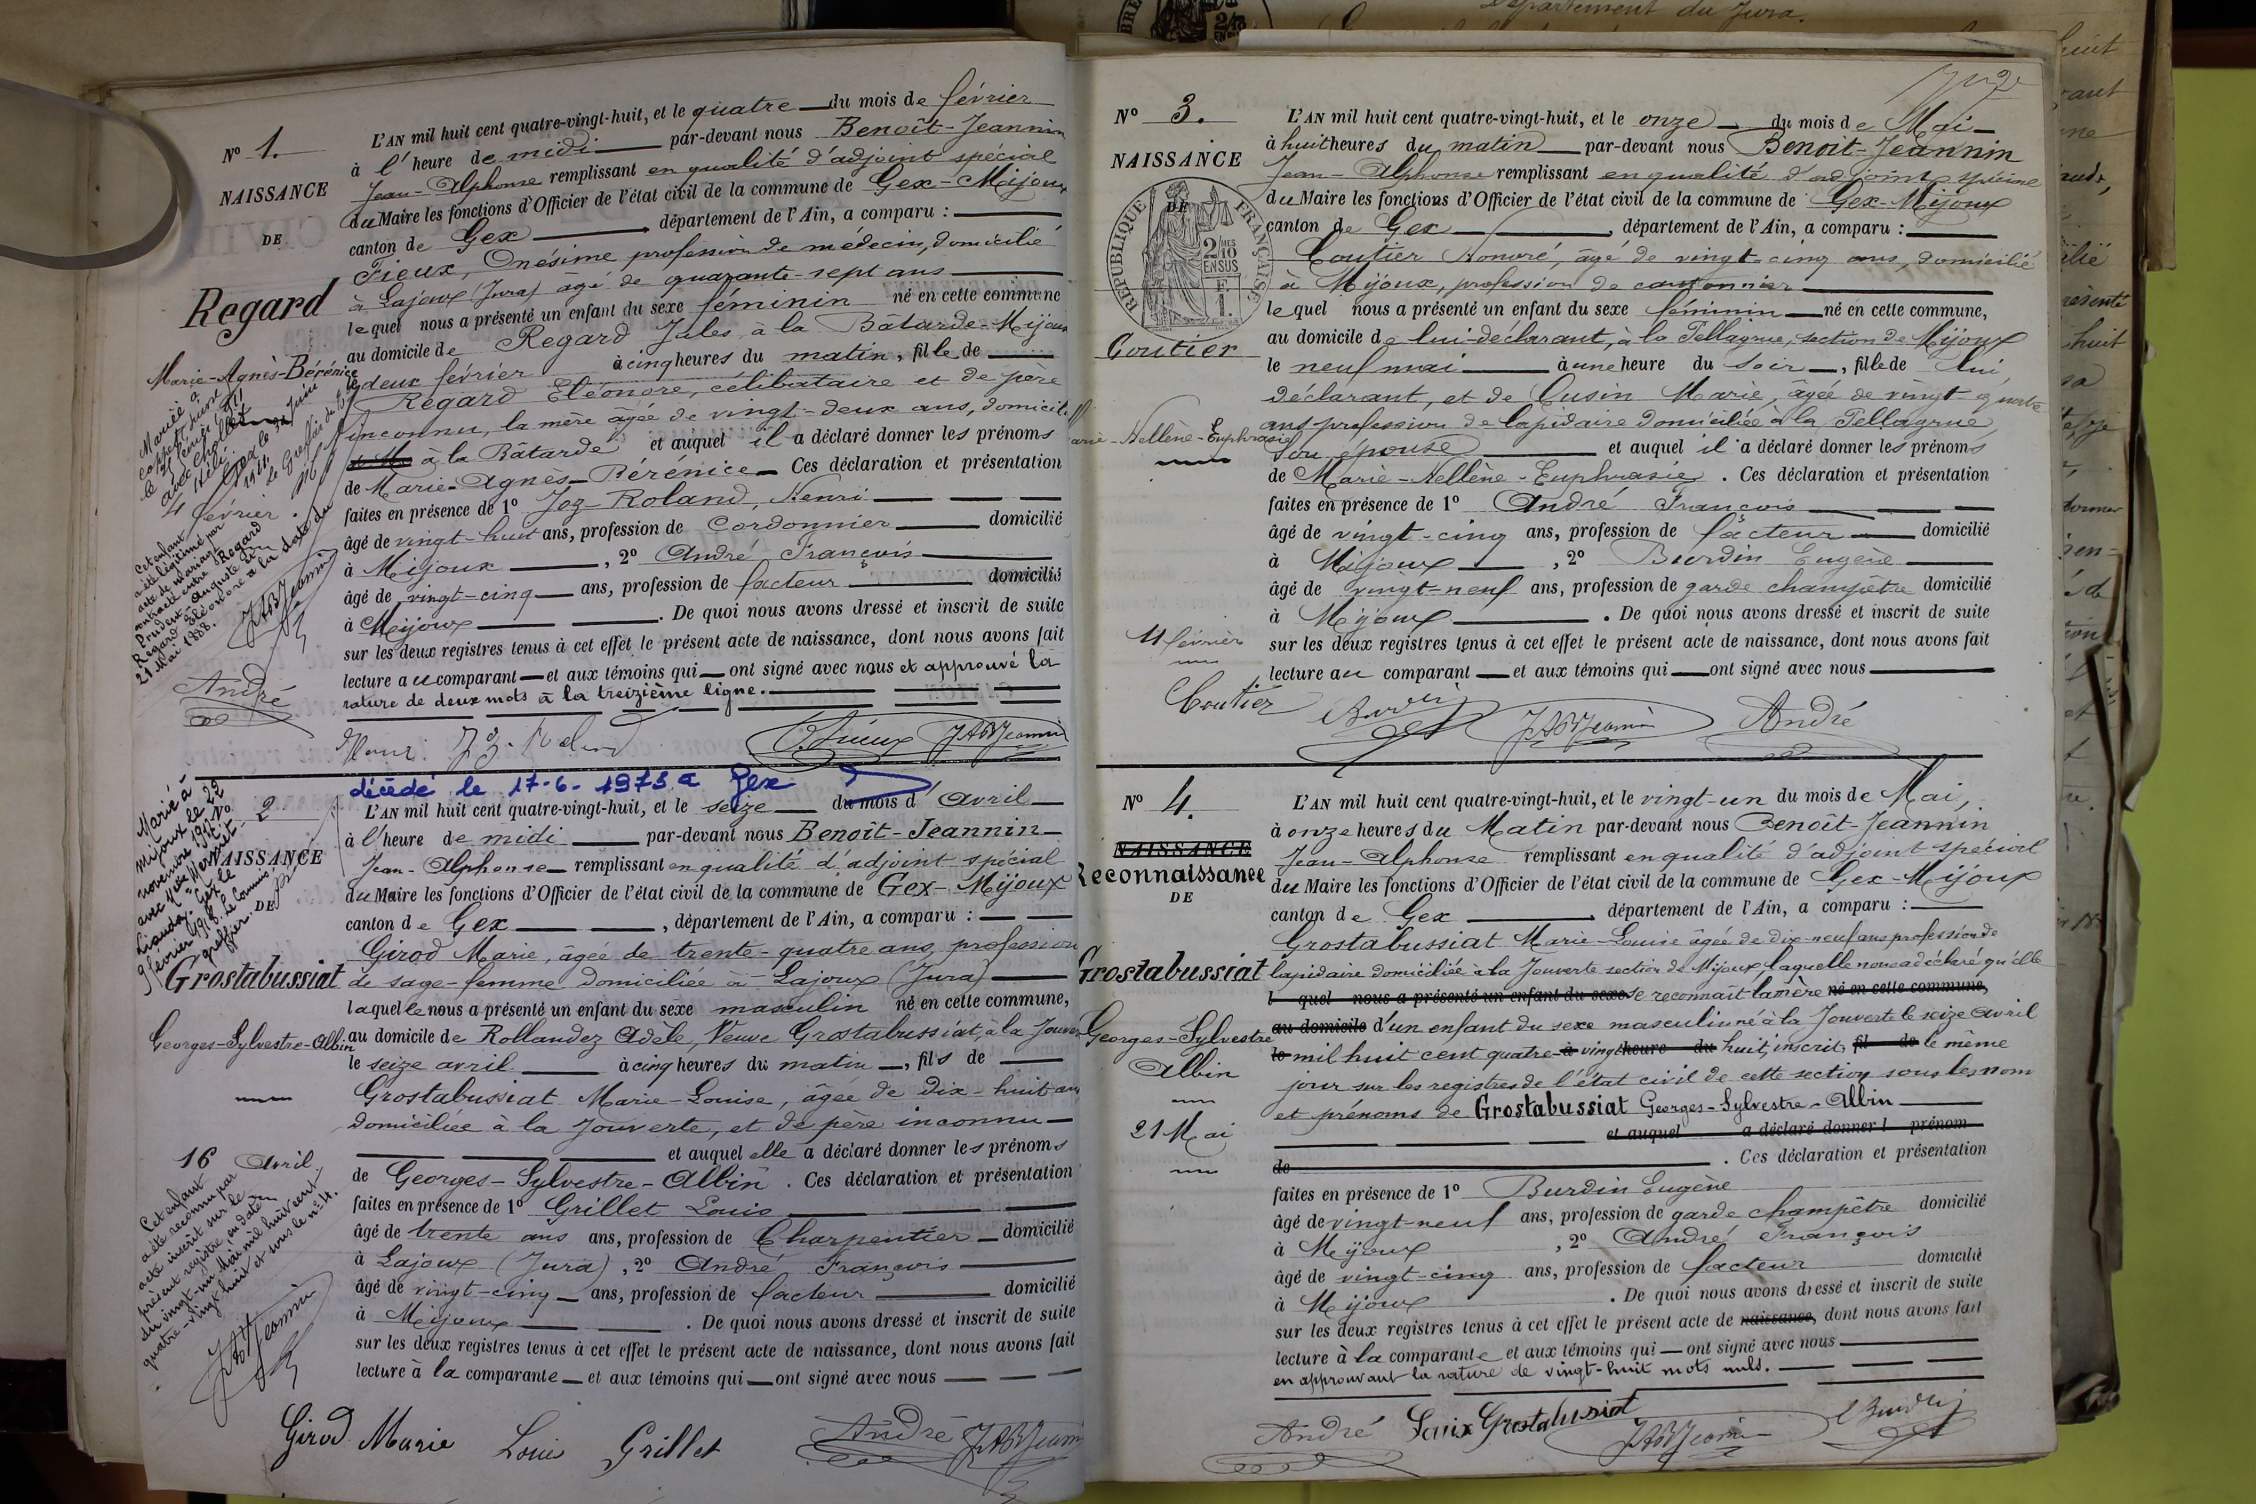 Département du Jura.
N° 1.
NAISSANCE
DE
Regard
Marie-Agnès-Bérénice
4 février.
Cet enfant
a été légitimé par
acte de mariage
contracté entre Regard
Prudent Auguste et
Regard Eléonore à la date du
21 Mai 1888.
L'AN mil huit cent quatre-vingt-huit, et le quatre du mois de février
à l'heure de midi par-devant nous Benoît-Jeannin
Jean-Alphonse remplissant en qualité d'adjoint spécial
du Maire les fonctions d'Officier de l'état civil de la commune de Gex-Mijoux
canton de Gex, département de l'Ain, a comparu :
Fieux, Onésime profession de médecin, domicilié
à Lajoux (Jura) âgé de quarante-sept ans
lequel nous a présenté un enfant du sexe féminin né en cette commune
au domicile de Regard Jules, à la Bâtarde-Mijoux
le deux février à cinq heures du matin, fille de
Regard Eléonore, célibataire et de père
inconnu, la mère âgée de vingt-deux ans, domiciliée
à la Bâtarde et auquel il a déclaré donner les prénoms
de Marie-Agnès-Bérénice Ces déclaration et présentation
faites en présence de 1° Joz-Roland, Henri
âgé de vingt-huit ans, profession de Cordonnier domicilié
à Mijoux, 2° André François
âgé de vingt-cinq ans, profession de facteur domicilié
à Mijoux. De quoi nous avons dressé et inscrit de suite
sur les deux registres tenus à cet effet le présent acte de naissance, dont nous avons fait
lecture au comparant et aux témoins qui ont signé avec nous et approuvé la
rature de deux mots à la treizième ligne.
André
Henri Joz-Roland O. Fieux JABJeannin
décédé le 17-6-1973 à Gex
N° 2
NAISSANCE
DE
Marié à
Mijoux le 22
novembre 1917
Grostabussiat
Georges-Sylvestre-Albin
16 Avril.
Cet enfant
a été reconnu par
acte inscrit sur le
présent registre, en date
du vingt-un Mai mil huit cent
quatre-vingt huit et sous le n° 4.
L'AN mil huit cent quatre-vingt-huit, et le seize du mois d'Avril
à l'heure de midi par-devant nous Benoît-Jeannin
Jean-Alphonse remplissant en qualité d'adjoint spécial
du Maire les fonctions d'Officier de l'état civil de la commune de Gex-Mijoux
canton de Gex, département de l'Ain, a comparu :
Girod Marie, âgée de trente-quatre ans, profession
de sage-femme domiciliée à Lajoux (Jura)
laquelle nous a présenté un enfant du sexe masculin né en cette commune,
au domicile de Rollandez Adèle, Veuve Grostabussiat, à la Jouverte
le seize avril à cinq heures du matin, fils de
Grostabussiat Marie-Louise, âgée de dix-huit ans
domiciliée à la Jouverte, et de père inconnu
et auquel elle a déclaré donner les prénoms
de Georges-Sylvestre-Albin. Ces déclaration et présentation
faites en présence de 1° Grillet Louis
âgé de trente ans ans, profession de Charpentier domicilié
à Lajoux (Jura), 2° André François
âgé de vingt-cinq ans, profession de facteur domicilié
à Mijoux. De quoi nous avons dressé et inscrit de suite
sur les deux registres tenus à cet effet le présent acte de naissance, dont nous avons fait
lecture à la comparante et aux témoins qui ont signé avec nous
Girod Marie Louis Grillet André JABJeannin
N° 3.
NAISSANCE
DE
RÉPUBLIQUE FRANÇAISE
2/10 EN SUS
Coutier
Marie-Hellène-Euphrasie
11 février
L'AN mil huit cent quatre-vingt-huit, et le onze du mois de Mai
à huit heures du matin par-devant nous Benoît-Jeannin
Jean-Alphonse remplissant en qualité d'adjoint spécial
du Maire les fonctions d'Officier de l'état civil de la commune de Gex-Mijoux
canton de Gex, département de l'Ain, a comparu :
Coutier Honoré, âgé de vingt-cinq ans, domicilié
à Mijoux, profession de cantonnier
lequel nous a présenté un enfant du sexe féminin né en cette commune,
au domicile de lui-déclarant, à la Pellagrue, section de Mijoux
le neuf mai à une heure du soir, fille de lui
déclarant, et de Cusin Marie, âgée de vingt-quatre
ans profession de lapidaire domiciliée à la Pellagrue
son épouse et auquel il a déclaré donner les prénoms
de Marie-Hellène-Euphrasie. Ces déclaration et présentation
faites en présence de 1° André François
âgé de vingt-cinq ans, profession de facteur domicilié
à Mijoux, 2° Burdin Eugène
âgé de vingt-neuf ans, profession de garde champêtre domicilié
à Mijoux. De quoi nous avons dressé et inscrit de suite
sur les deux registres tenus à cet effet le présent acte de naissance, dont nous avons fait
lecture au comparant et aux témoins qui ont signé avec nous
Coutier EBurdin JABJeannin André
N° 4.
NAISSANCE
Reconnaissance
DE
Grostabussiat
Georges-Sylvestre
Albin
21 Mai
L'AN mil huit cent quatre-vingt-huit, et le vingt-un du mois de Mai,
à onze heures du Matin par-devant nous Benoît-Jeannin
Jean-Alphonse remplissant en qualité d'adjoint spécial
du Maire les fonctions d'Officier de l'état civil de la commune de Gex-Mijoux
canton de Gex, département de l'Ain, a comparu :
Grostabussiat Marie-Louise âgée de dix-neuf ans profession de
lapidaire domiciliée à la Jouverte section de Mijoux, laquelle nous a déclaré qu'elle
l quel nous a présenté un enfant du sexe se reconnaît la mère né en cette commune,
au domicile d'un enfant du sexe masculin né à la Jouverte le seize avril
le mil huit cent quatre-à vingt heure du huit, inscrit fil de le même
jour sur les registres de l'état civil de cette section sous les nom
et prénoms de Grostabussiat Georges-Sylvestre-Albin
et auquel a déclaré donner l prénom
de. Ces déclaration et présentation
faites en présence de 1° Burdin Eugène
âgé de vingt-neuf ans, profession de garde champêtre domicilié
à Mijoux, 2° André François
âgé de vingt-cinq ans, profession de facteur domicilié
à Mijoux. De quoi nous avons dressé et inscrit de suite
sur les deux registres tenus à cet effet le présent acte de naissance, dont nous avons fait
lecture à la comparante et aux témoins qui ont signé avec nous
en approuvant la rature de vingt-huit mots nuls.
André Louise Grostabusiat JABJeannin EBurdin